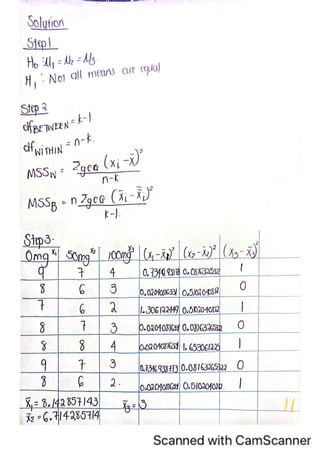 Solution
Step 1
H₀ : μ₁ = μ₂ = μ₃
H₁ : Not all means are equal
Step 2
df BETWEEN = k-1
df WITHIN = n-k.
MSSw = Σgεa (xᵢ - x̄)²
n-k
MSS_B = n Σgεa (x̄ᵢ - x̄)²
k-1.
Step 3.
0mg x₁ 50mg x₂ 100mg x₃ (x₁-x̄₁)² (x₂-x̄₂)² (x₃-x̄₃)²
9 7 4 0.081632652 1
8 6 3 0.020408163 0.510204082 0
7 6 2 1.306122449 0.510204082 1
8 7 3 0.020408163 0.081632652 0
8 8 4 0.020408163 1.653061225 1
9 7 3 0.734693877 0.081632652 0
8 6 2. 0.020408163 0.510204082 1
x̄₁ = 8.142857143 x̄₃ = 3
x̄₂ = 6.714285714
11
Scanned with CamScanner